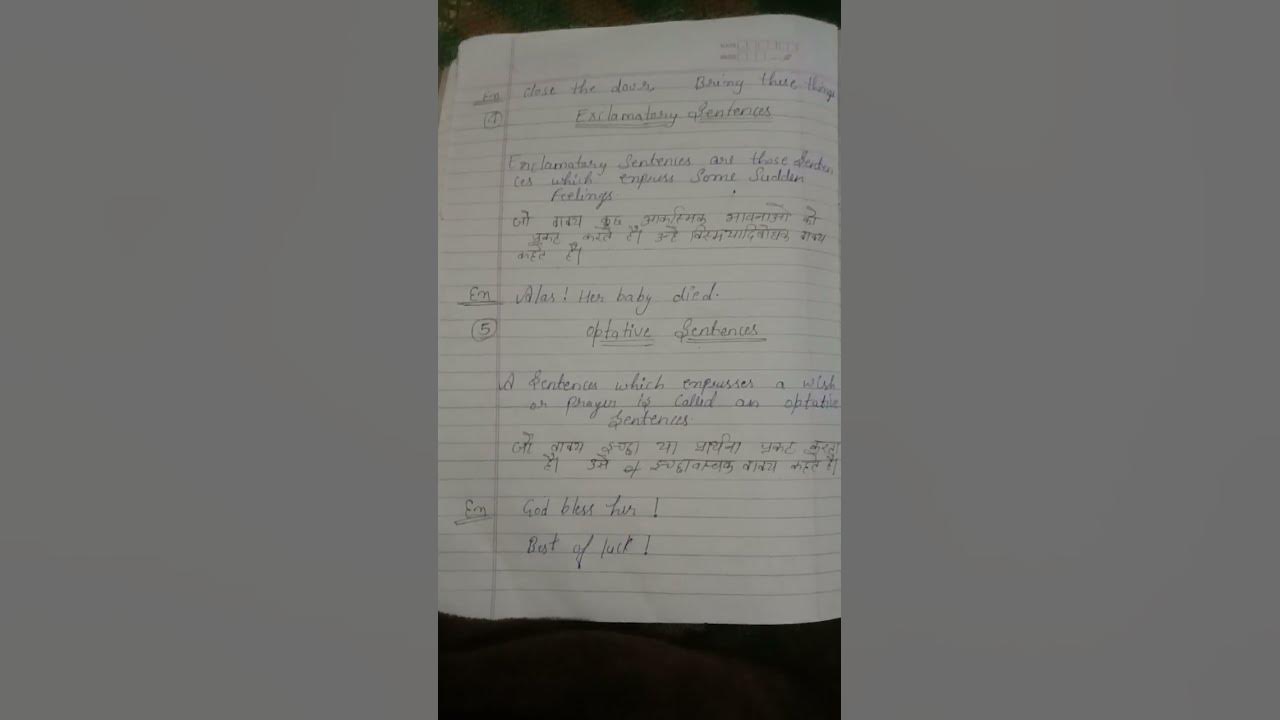 Ex close the door. Bring these things
④ Exclamatory Sentences
Exclamatory Sentences are those Senten
ces which express Some Sudden
Feelings
जो वाक्य कुछ आकस्मिक भावनाओ को
प्रकट करते है। उन्हे विस्मयादिबोधक वाक्य
कहते है।
Ex Alas! Her baby died.
⑤ Optative Sentences
A Sentences which expresses a wish
or prayer is called an optative
Sentences
जो वाक्य इच्छा या प्रार्थना प्रकट करता
है। उसे वाक्य कहते है।
Ex God bless her!
Best of luck!